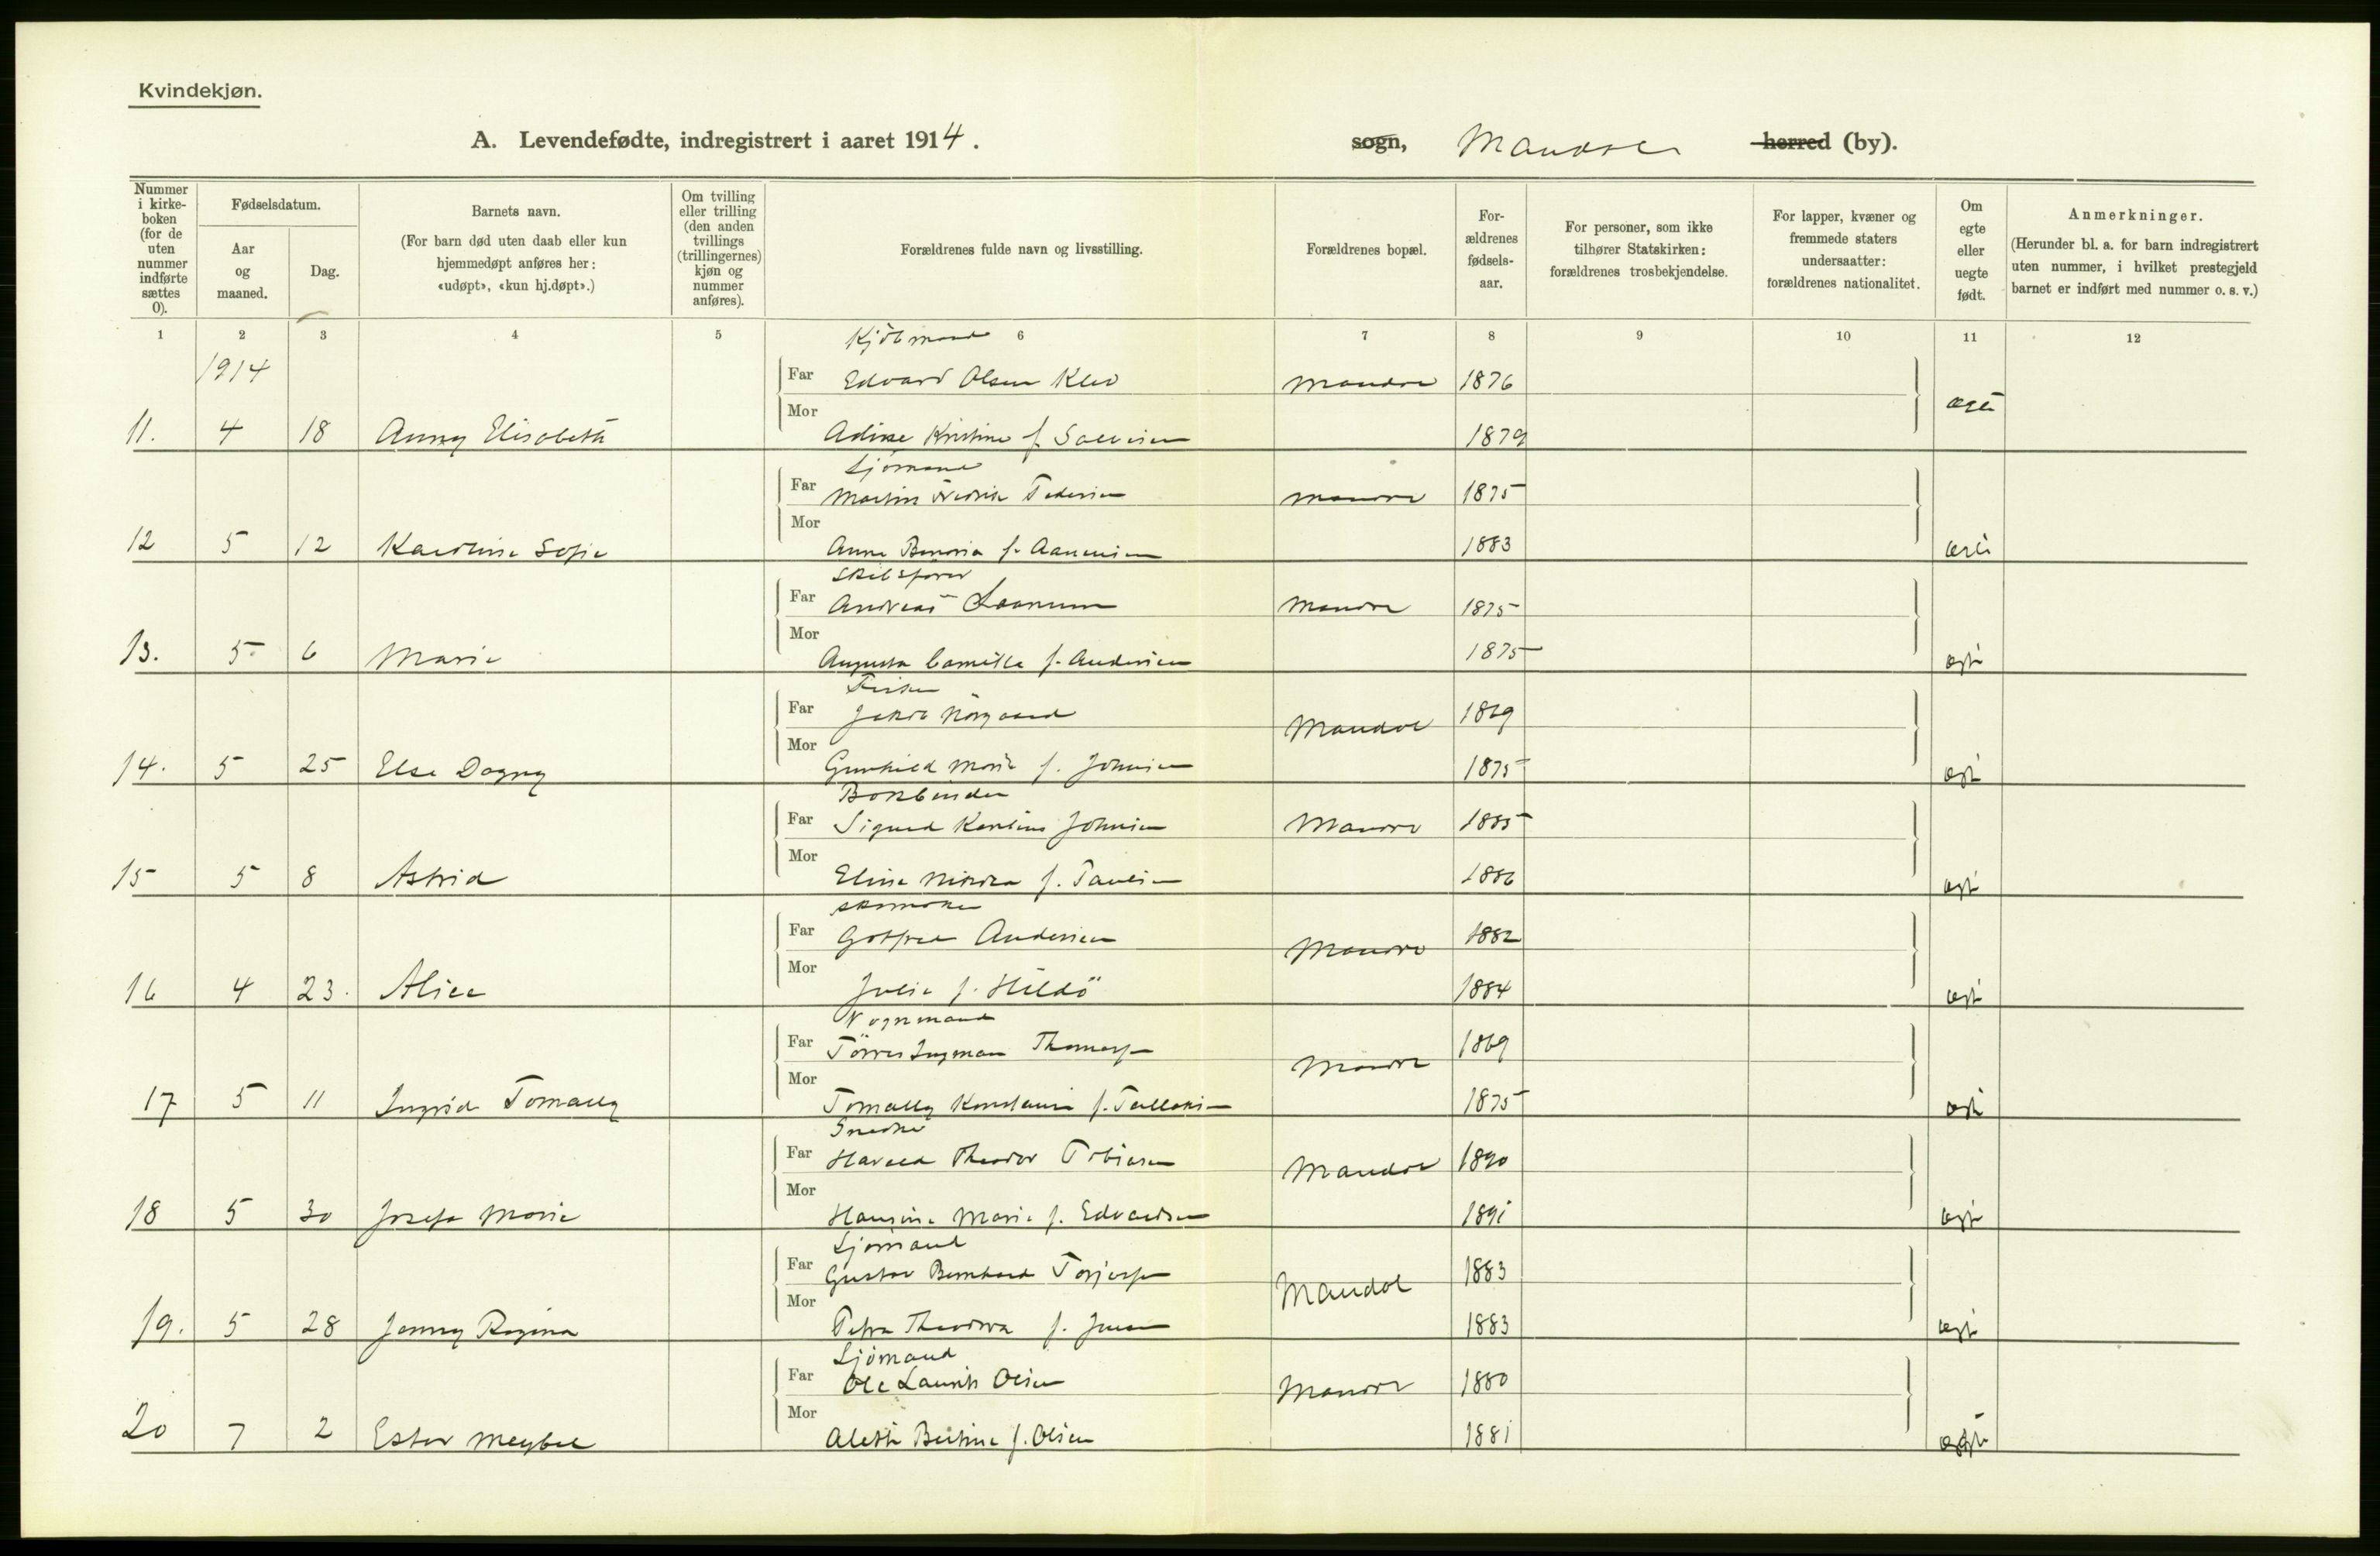 Kvindekjøn.
A. Levendefødte, indregistrert i aaret 1914.
sogn, Mandal herred (by).
Nummer i kirke-boken (for de uten nummer indførte sættes 0).
Fødselsdatum.
Aar og maaned.
Dag.
Barnets navn.
(For barn død uten daab eller kun hjemmedøpt anføres her: «udøpt», «kun hj.døpt».)
Om tvilling eller trilling (den anden tvillings (trillingernes) kjøn og nummer anføres).
Forældrenes fulde navn og livsstilling.
Forældrenes bopæl.
For-ældrenes fødsels-aar.
For personer, som ikke tilhører Statskirken: forældrenes trosbekjendelse.
For lapper, kvæner og fremmede staters undersaatter: forældrenes nationalitet.
Om egte eller uegte født.
Anmerkninger.
(Herunder bl. a. for barn indregistrert uten nummer, i hvilket prestegjeld barnet er indført med nummer o. s. v.)
1 2 3 4 5 6 7 8 9 10 11 12
1914
Kjöbmand
Far Edvard Olsen Klev Mandal 1876
Mor
11. 4 18 Anny Elisabeth Adine Kristine f. Salvesen 1879 ægte
Sjömand
Far Martin Fredrik Pedersen Mandal 1875
Mor
12 5 12 Karoline Sofie Anna f. Aanensen 1883 ægte
Skibsförer
Far Andreas Mandal 1875
Mor
13. 5 6 Marie Augusta Camilla f. Andersen 1875 ægte
Fisker
Far Jakob Nörgaard Mandal 1869
Mor
14. 5 25 Else Dagny Gunhild Marie f. Johnsen 1875 ægte
Bokbinder
Far Sigurd Johnsen Mandal 1885
Mor
15 5 8 Astrid Elise f. Paulsen 1886 ægte
Skomaker
Far Gotfred Andersen Mandal 1882
Mor
16 4 23. Alice Julie f. Hildö 1884 ægte
Vognmand
Far Törres Ingman Thomassen Mandal 1869
Mor
17 5 11 Ingrid Tomally Tomally Konstance f. Tallaksen 1875 ægte
Snedker
Far Harald Theodor Tobiasen Mandal 1890
Mor
18 5 30 Josefa Marie Hansine Marie f. Edvardsen 1891 ægte
Sjömand
Far Gustav Bernhard Torjussen Mandal 1883
Mor
19. 5 28 Jenny Regina Petra Theodora f. Jensen 1883 ægte
Sjömand
Far Ole Laurits Olsen Mandal 1880
Mor
20 7 2 Ester Meybel Alette Bertine f. Olsen 1881 ægte